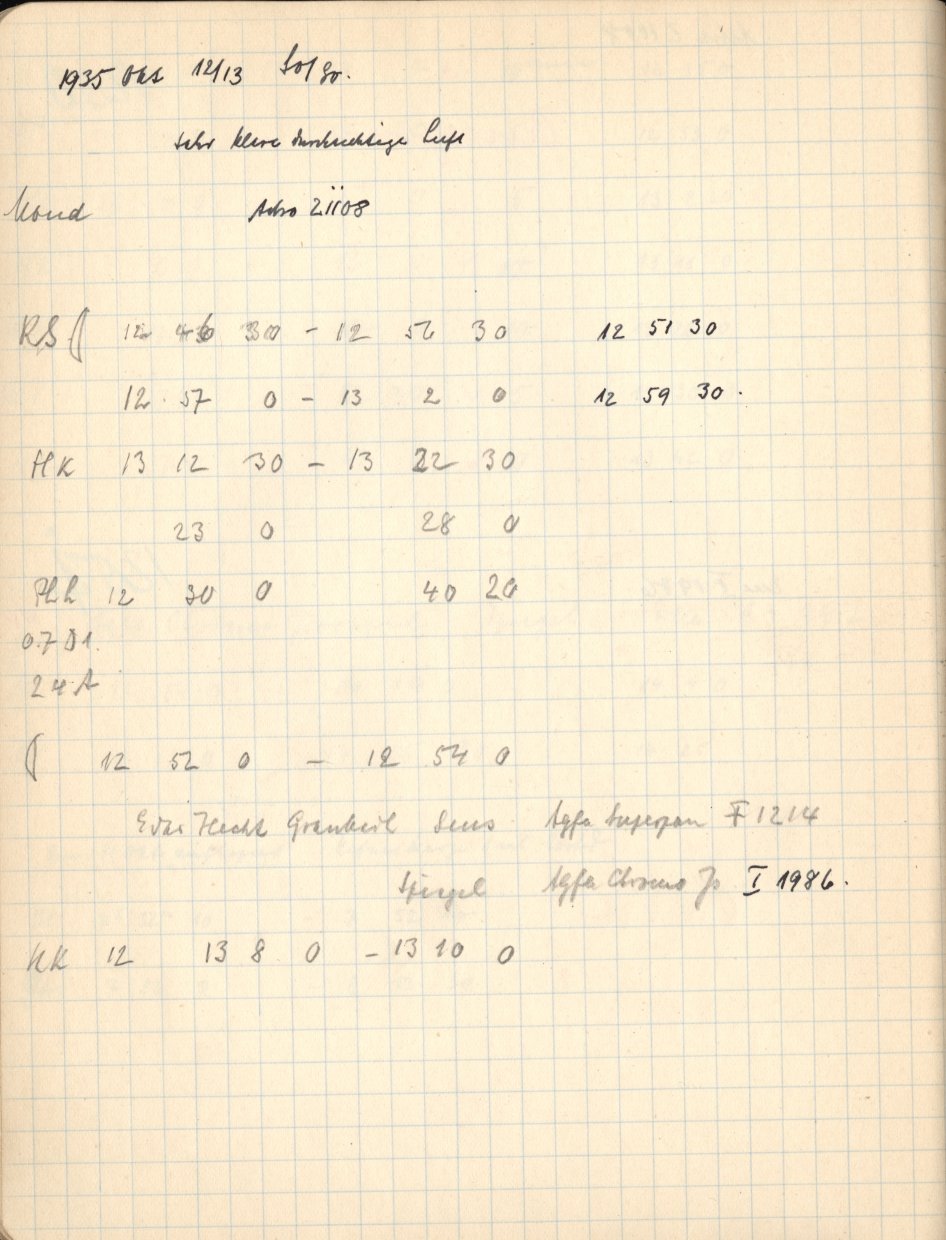 1935 Okt 12/13 So/
Sehr klare durchsichtige Luft
Mond Astro Zü08
RS ( 12 46 30 – 12 56 30 12 51 30
12 57 0 – 13 2 0 12 59 30.
HK 13 12 30 – 13 22 30
23 0 28 0
12 30 0 40 20
0.7 D1.
24 A
( 12 52 0 – 12 54 0
Eder Hecht Graukeil Sens Agfa Superpan 1214
Spiegel Agfa Chromo I 1986.
HK 12 13 8 0 – 13 10 0